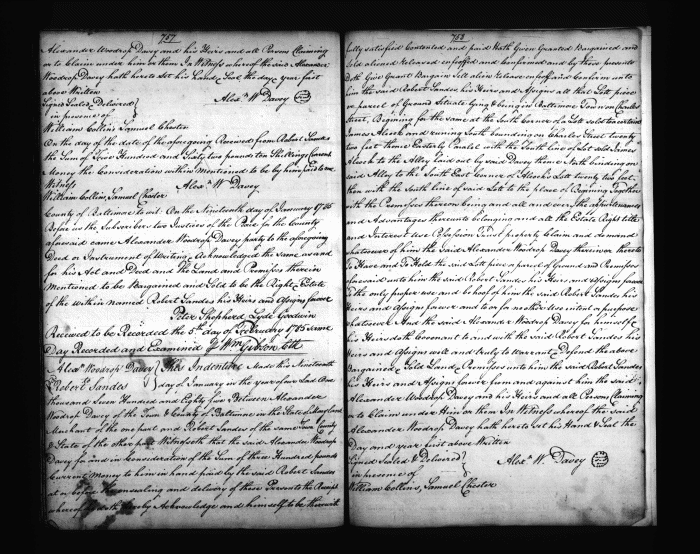 757
Alexander Woodrop Davey and his Heirs and all Persons Claiming
or to Claim under him or them In Witness whereof the said Alexander
Woodrop Davey hath hereto set his Hand & Seal the day & year first
above Written
Signed Sealed & Delivered
in presence of
Alexr W Davey
William Collins Samuel Chester
On the day of the date of the aforegoing Received from Robert Sandes
the Sum of Five Hundred and Sixty two pounds ten Shillings Current
Money the Consideration within Mentioned to be by him paid to me
Witness
Alexr W Davey
William Collins, Samuel Chester
County of Baltimore to wit. On the Nineteenth day of January 1785
Before us the Subscribers two Justices of the Peace for the County
aforesaid came Alexander Woodrop Davey party to the aforegoing
Deed or Instrument of Writing & Acknowledged the same as and
for his Act and Deed and the Land and Premises therein
Mentioned to be Bargained and Sold to be the Right & Estate
of the within Named Robert Sandes his Heirs and Assigns forever
Peter Shepherd Lyde Goodwin
Received to be Recorded the 5th day of February 1785 same
Day Recorded and Examined Wm Gibson Clk
Alexr Woodrop Davey
Robert Sandes
This Indenture Made this Nineteenth
day of January in the year of our Lord One
thousand Seven Hundred and Eighty five Between Alexander
Woodrop Davey of the Town & County of Baltimore in the State of Maryland
Merchant of the one part and Robert Sandes of the same Town County
& State of the other part Witnesseth that the said Alexander Woodrop
Davey for and in Consideration of the Sum of three Hundred pounds
Current Money to him in hand paid by the said Robert Sandes
at or before the ensealing and delivery of these Presents the Receipt
whereof he doth hereby Acknowledge and himself to be therewith
758
fully satisfied Contented and paid Hath Given Granted Bargained and
Sold aliened released enfeoffed and confirmed and by these presents
doth Give Grant Bargain Sell alien release enfeoff and Confirm unto
him the said Robert Sandes his Heirs and Assigns all that Lott piece
or parcel of Ground Situate lying & being in Baltimore Town on Charles
Street, Begining for the same at the South corner of a Lott sold to & called
James Alcock and runing South bounding on Charles Street twenty
two feet thence Easterly Paralel with the South line of Lot sold James
Alcock to the Alley laid out by said Davey thence North binding on
said Alley to the South East Corner of Alcock's Lott twenty two feet,
then with the South line of said Lott to the place of Begining Together
with the Premisses thereon being and all and every the Appurtenances
and Advantages thereunto belonging and all the Estate Right title
and Interest Use Possession Trust property Claim and demand
whatsoever of him the said Alexander Woodrop Davey therein or thereto
To Have and To Hold the said Lott piece or parcel of Ground and Premisses
aforesaid unto him the said Robert Sandes his Heirs and Assigns forever
to the only proper use and behoof of him the said Robert Sandes his
Heirs and Assigns forever and to or for no other use intent or purpose
whatsoever. And the said Alexander Woodrop Davey for himself &
his Heirs doth Covenant to and with the said Robert Sandes his
Heirs and Assigns well and truly to Warrant & Defend the above
Bargained & Sold Land & Premises unto him the said Robert Sandes
his Heirs and Assigns forever from and against him the said
Alexander Woodrop Davey and his Heirs and all Persons Claiming
or to Claim under Him or them In Witness whereof the said
Alexander Woodrop Davey hath hereto set his Hand & Seal the
Day and year first above Written
Signed Sealed & Delivered
in presence of
Alexr W. Davey
William Collins, Samuel Chester